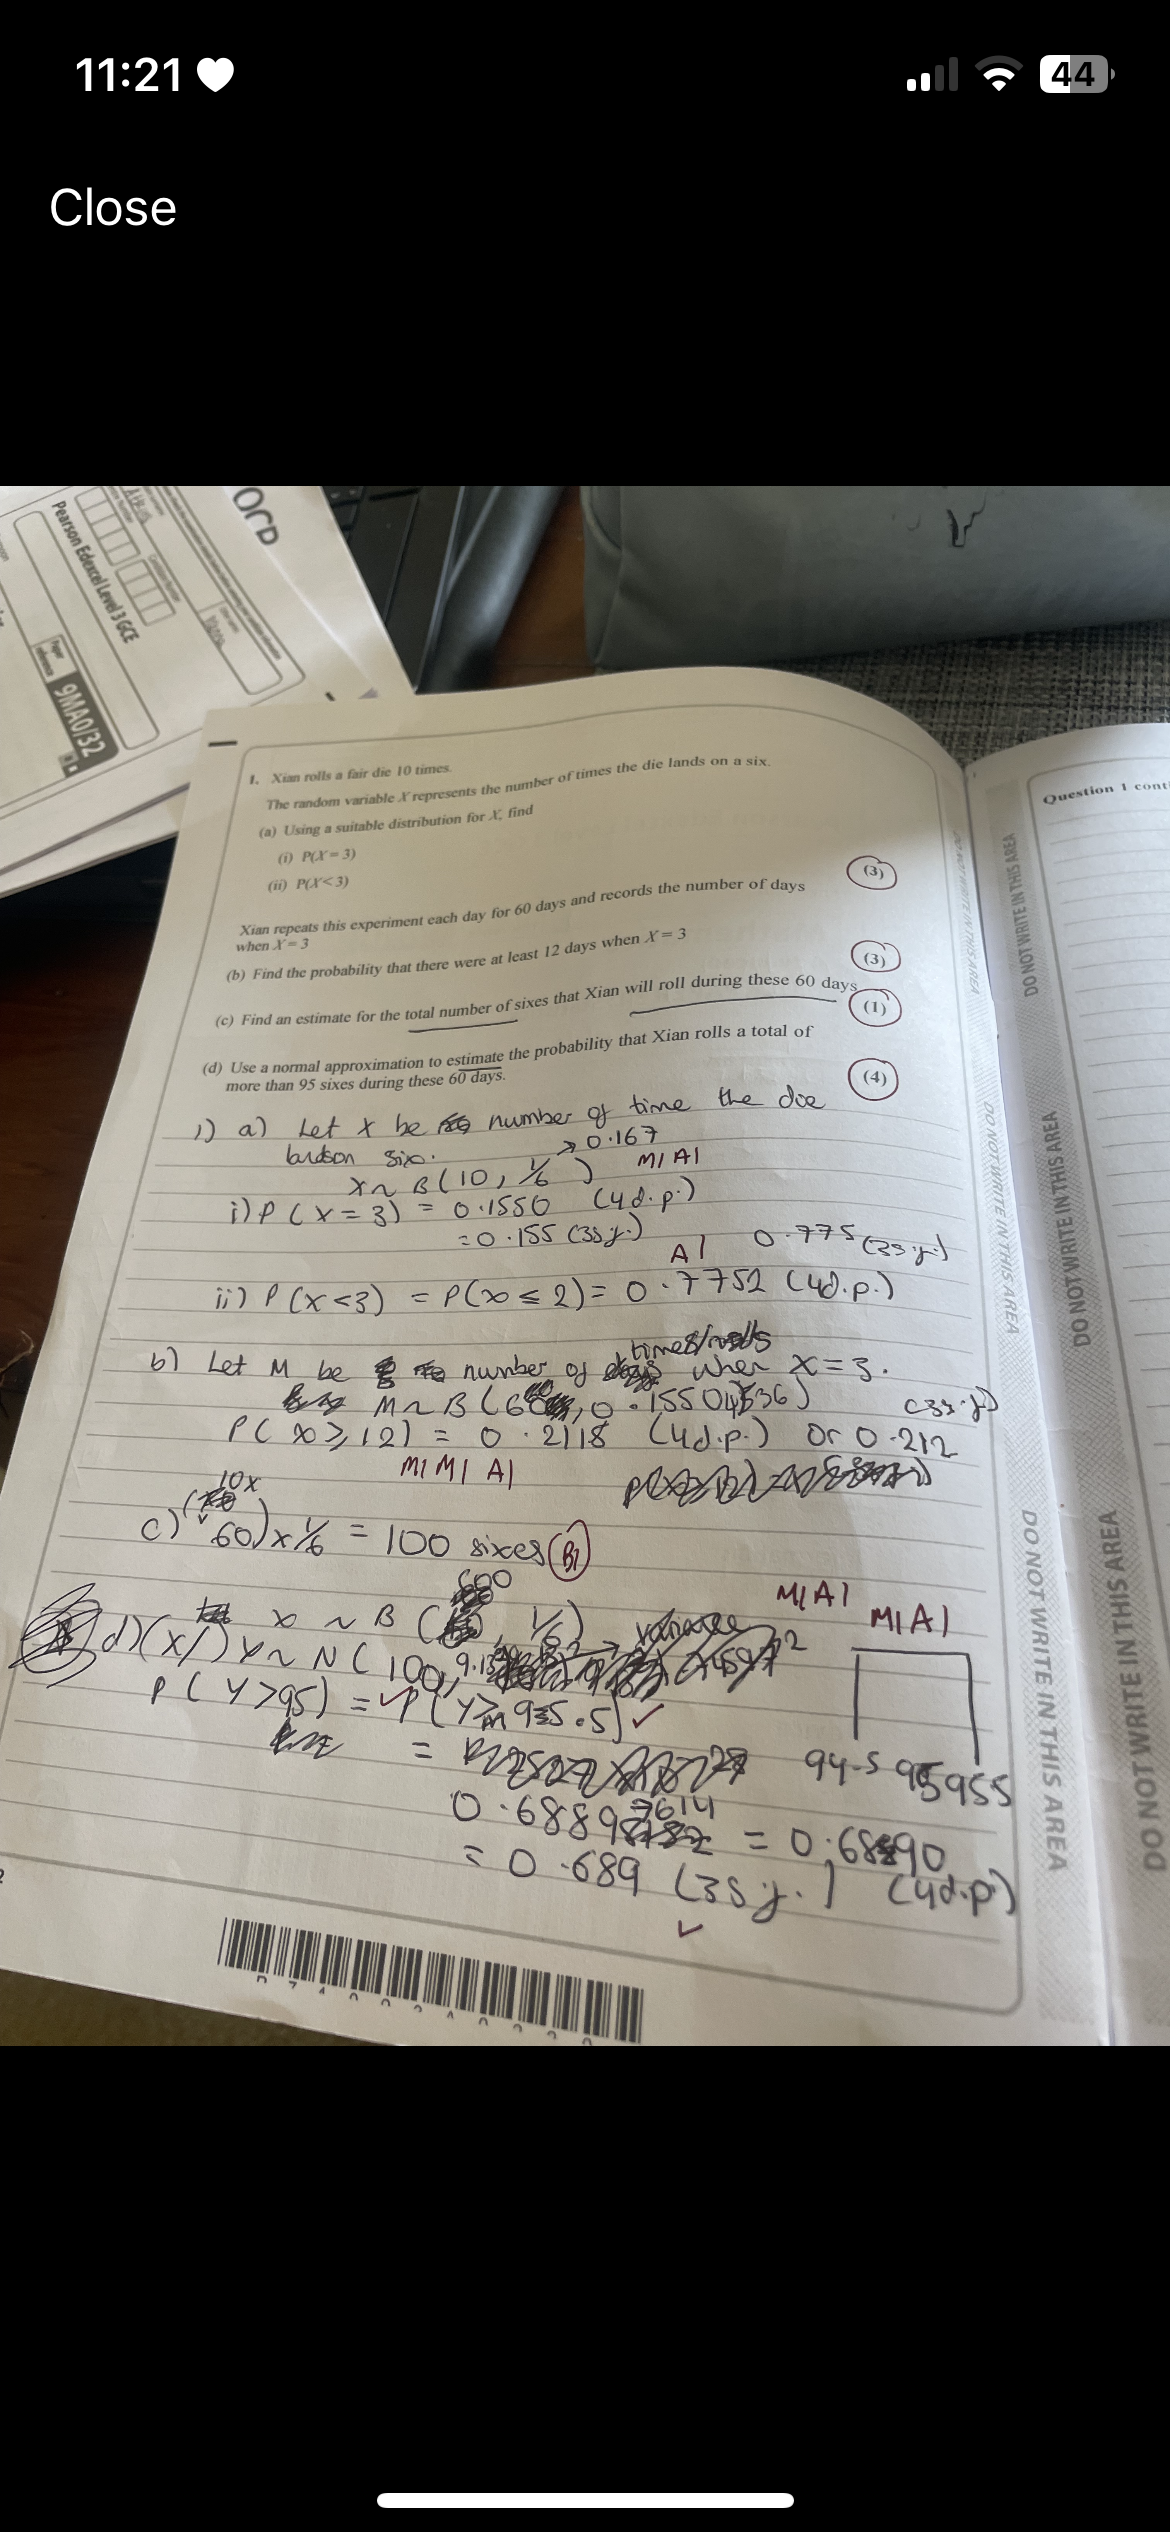 11:21
44
Close
ORD
Pearson Edexcel Level 3 GCE
Paper reference
9MA0/32
1. Xian rolls a fair die 10 times.
The random variable X represents the number of times the die lands on a six.
(a) Using a suitable distribution for X, find
(i) P(X = 3)
(ii) P(X < 3)
(3)
Xian repeats this experiment each day for 60 days and records the number of days
when X = 3
(b) Find the probability that there were at least 12 days when X = 3
(3)
(c) Find an estimate for the total number of sixes that Xian will roll during these 60 days
(1)
(d) Use a normal approximation to estimate the probability that Xian rolls a total of
more than 95 sixes during these 60 days.
(4)
1) a) Let X be number of time the die
lands on six.
→ 0.167
X ~ B(10, 1/6) M1 A1
i) P(X = 3) = 0.1550 (4d.p.)
= 0.155 (3s.f.)
A1 0.775 (3s.f.)
ii) P(X < 3) = P(x ≤ 2) = 0.7752 (4d.p.)
b) Let M be number of times/rolls when x = 3.
M ~ B(60, 0.15504536) (3s.f.)
P(x ≥ 12) = 0.2118 (4d.p.) or 0.212
M1 M1 A1
c) (10x 60) x 1/6 = 100 sixes B1
600
d) x ~ B( , 1/6) variance M1 A1
M1 A1
(x/) Y ~ N(100, 9.13
P(Y > 95) = P(Y > 95.5)
94.5 95 95.5
0.68897614 = 0.6890
(4d.p.)
= 0.689 (3s.f.)
DO NOT WRITE IN THIS AREA
DO NOT WRITE IN THIS AREA
DO NOT WRITE IN THIS AREA
Question 1 cont
DO NOT WRITE IN THIS AREA
DO NOT WRITE IN THIS AREA
DO NOT WRITE IN THIS AREA